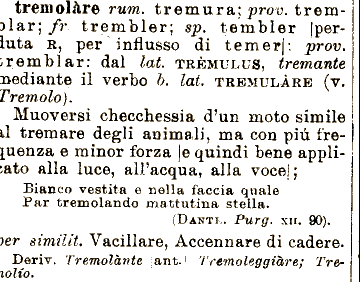 tremolàre rum. tremura; prov. trem-
blar; fr trembler; sp. tembler |per-
duta R, per influsso di temer|: prov.
tremblar: dal lat. TRÈMULUS, tremante
mediante il verbo b. lat. TREMULÀRE (v.
Tremolo).
Muoversi checchessia d'un moto simile
al tremare degli animali, ma con più fre-
quenza e minor forza |e quindi bene appli-
cato alla luce, all'acqua, alla voce|;
Bianco vestita e nella faccia quale
Par tremolando mattutina stella.
(DANTE. Purg. XII. 90).
per similit. Vacillare, Accennare di cadere.
Deriv. Tremolànte |ant.| Tremoleggiàre; Tre-
molío.